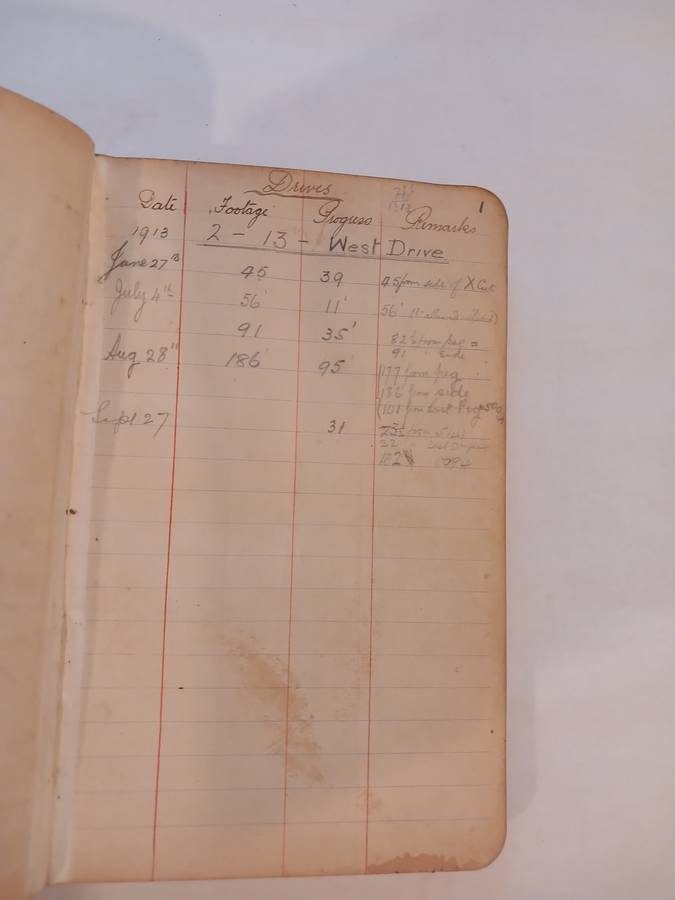 Drives
1
Date Footage Progress Remarks
1913 2 - 13 - West Drive
June 27th 45 39 45 from side of X Cut
July 4th 56' 11' 56'
91 35' 82 ½ from peg =
91 " side "
Aug 28th 186' 95' 177 from peg "
186 from side
101 from last Peg
Sept 27 31
32
182